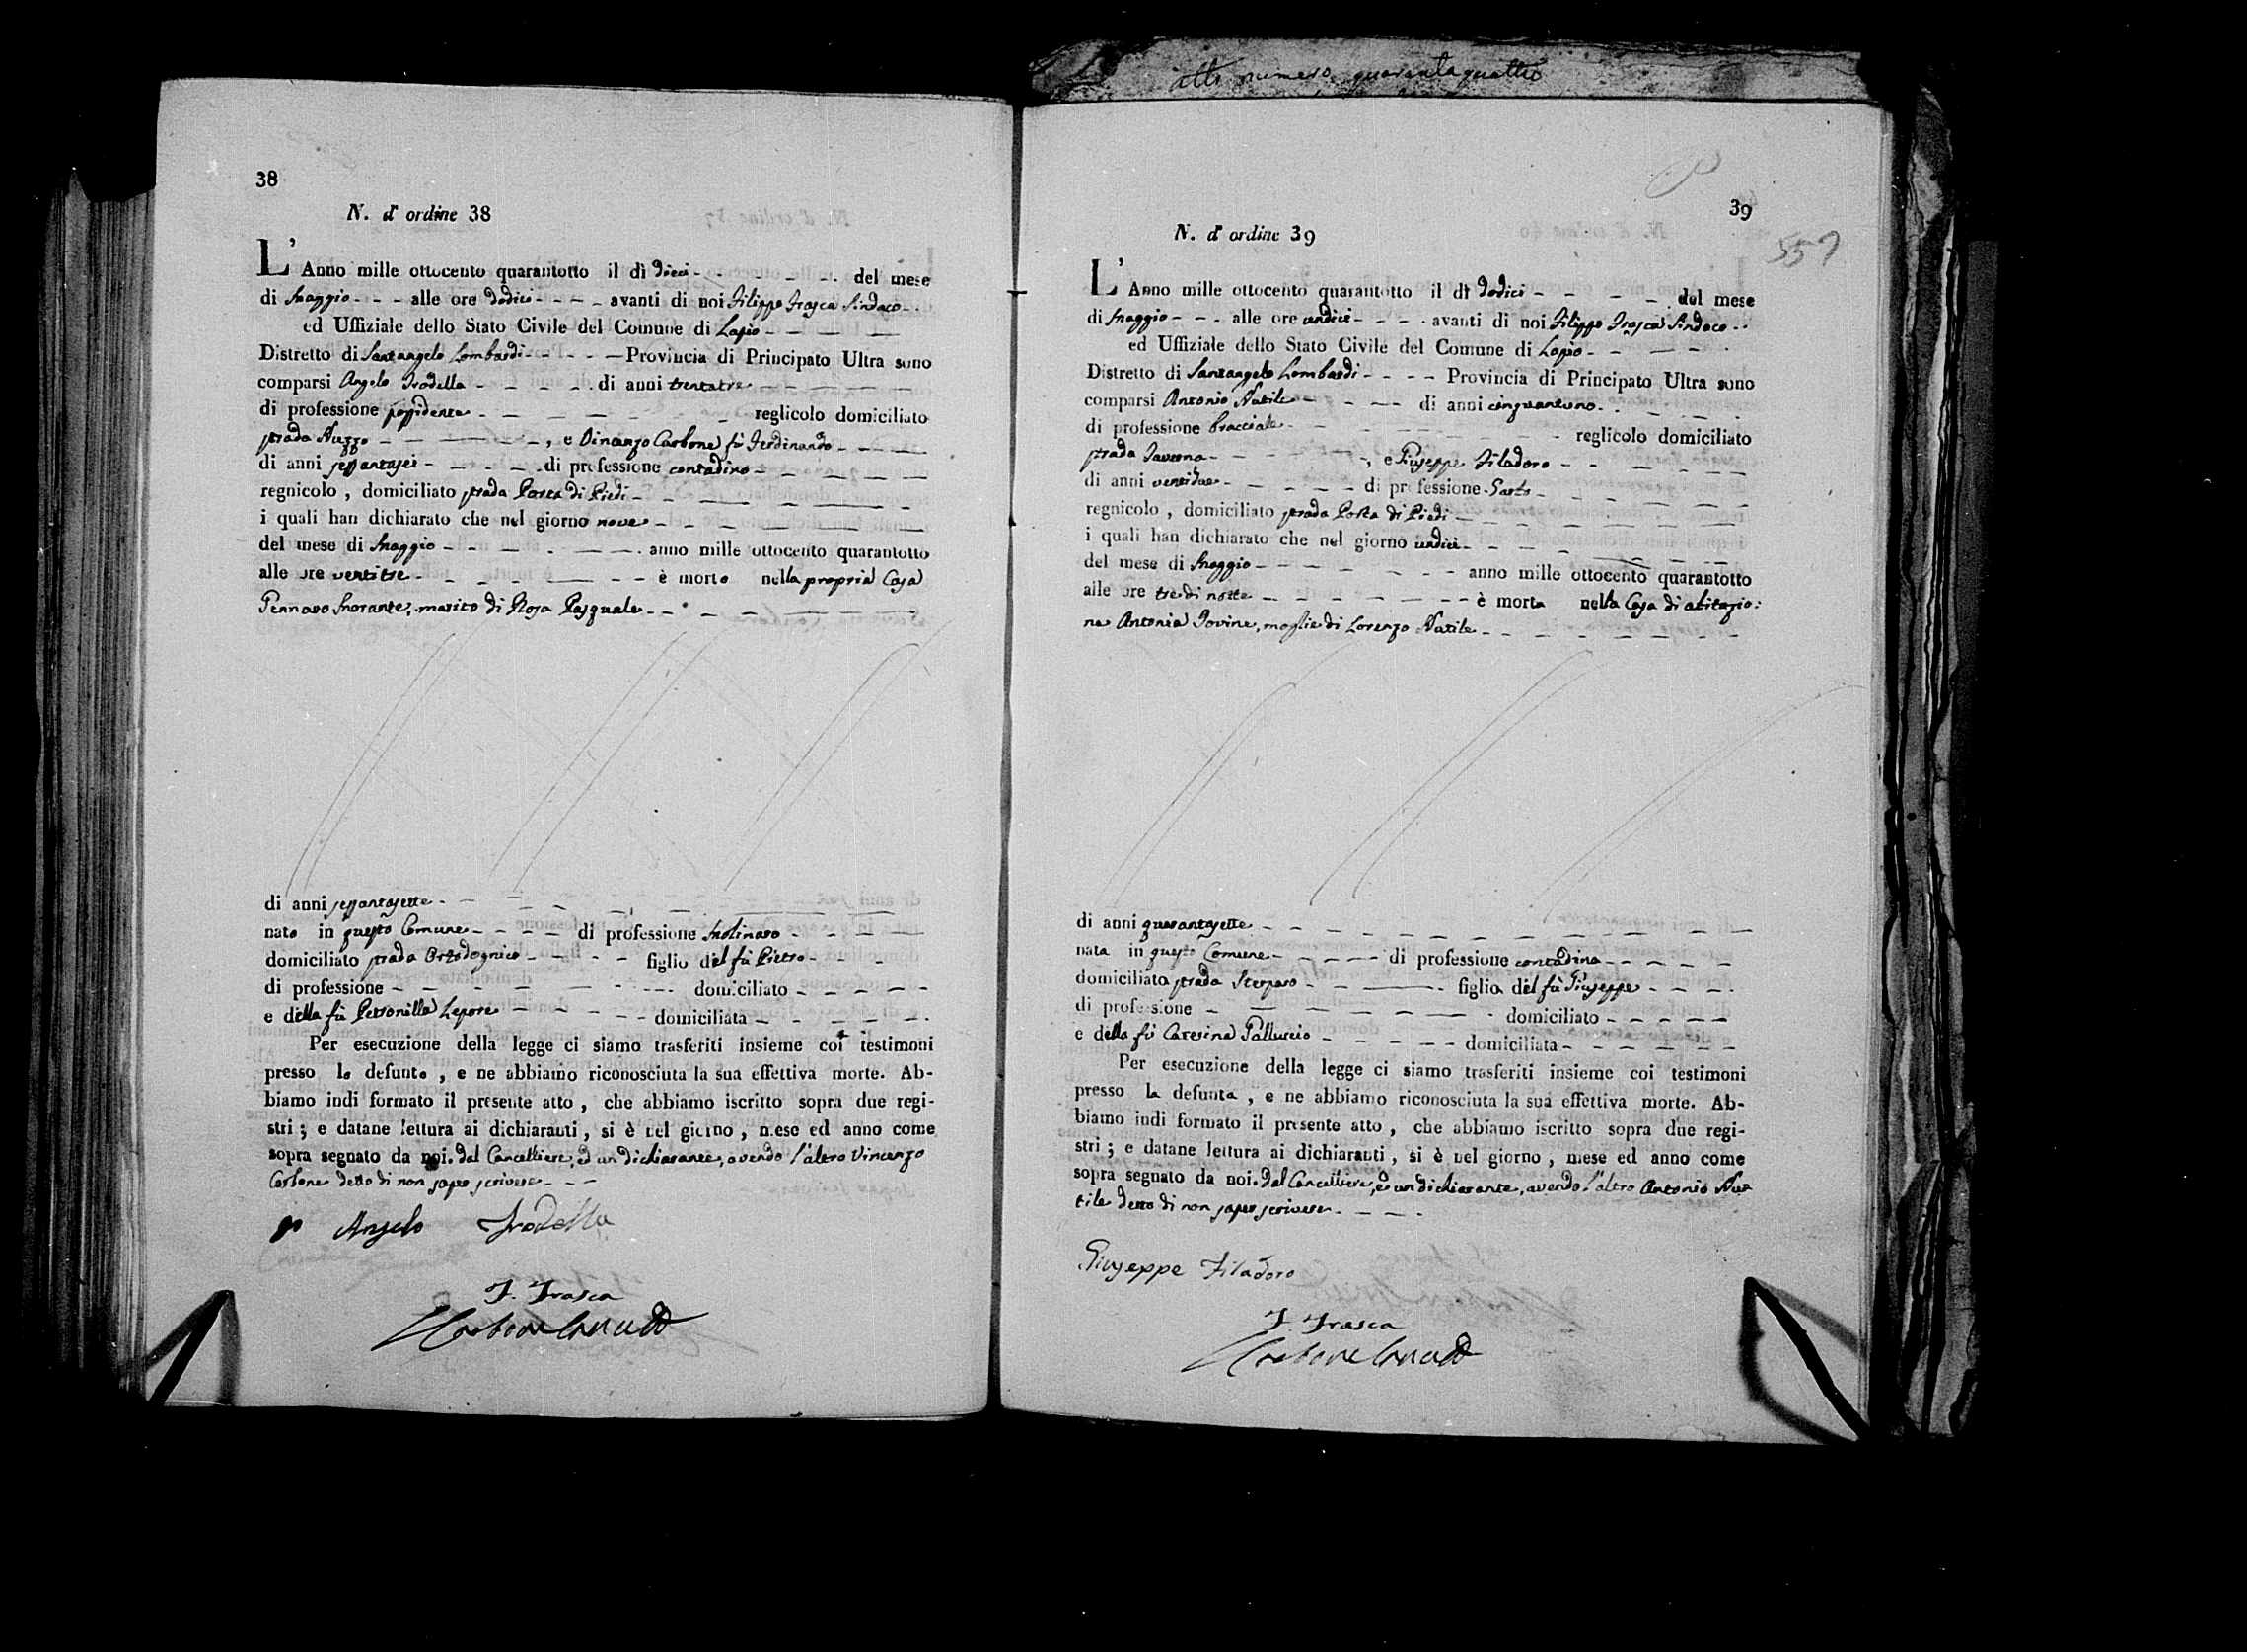 atto numero quarantaquattro
38
N. d' ordine 38
L' Anno mille ottocento quarantotto il dì dieci - - - - - - del mese
di Maggio - - - alle ore dodici - - - - avanti di noi Filippo Frasca Sindaco - .
ed Uffiziale dello Stato Civile del Comune di Lapio - - - -
Distretto di Santangelo Lombardi - - - - - Provincia di Principato Ultra sono
comparsi Angelo Trodella - - - - - . di anni trentatre - - - - - -
di professione possidente - - - - - - - reglicolo domiciliato
strada Nuzzo - - - - - , e Vincenzo Carbone fù Ferdinando - - - -
di anni sessantasei - - - - - . di professione contadino - - - - - -
regnicolo , domiciliato strada Porta di Piedi - - - - - -
i quali han dichiarato che nel giorno nove - - - - - - -
del mese di Maggio - - - - - - . anno mille ottocento quarantotto
alle ore ventitre - - - - - - - è morto nella propria Casa
Gennaro Morante, marito di Rosa Pasquale - - - - - -
di anni sessantasette - - - - - - - - -
nato in questo Comune - - - - di professione Molinaro - - - -
domiciliato strada Ortodognico - - - - figlio del fù Pietro - - - -
di professione - - - - - - - - domiciliato - - - - -
e della fù Petronilla Lepore - - - - - - domiciliata - - - - - -
Per esecuzione della legge ci siamo trasferiti insieme coi testimoni
presso lo defunto , e ne abbiamo riconosciuta la sua effettiva morte. Ab-
biamo indi formato il presente atto , che abbiamo iscritto sopra due regi-
stri ; e datane lettura ai dichiaranti , si è nel giorno , mese ed anno come
sopra segnato da noi. dal Cancelliere, ed un dichiarante, avendo l'altro Vincenzo
Carbone detto di non saper scrivere - - -
Angelo Trodella
F. Frasca
Carbone
39
557
N. d' ordine 39
L' Anno mille ottocento quarantotto il dì dodici - - - - . del mese
di Maggio - - - . alle ore undici - - - - . avanti di noi Filippo Frasca Sindaco - .
ed Uffiziale dello Stato Civile del Comune di Lapio - - - - .
Distretto di Santangelo Lombardi - - - - Provincia di Principato Ultra sono
comparsi Antonio Natile - - - - - di anni cinquantuno . . - - - .
di professione bracciale - - - - - - - - reglicolo domiciliato
strada Taverna - - - - - - - , e Giuseppe Filadoro - - - - - -
di anni ventidue - - - - - - di professione Sarto - - - - - -
regnicolo , domiciliato strada Porta di Piedi - - - - - - -
i quali han dichiarato che nel giorno undici - - - - - -
del mese di Maggio - - - - - - - - anno mille ottocento quarantotto
alle ore tre di notte - - - - - - - - è morta nella Casa di abitazio:
ne Antonia Iovine, moglie di Lorenzo Natile - - - - - - - -
di anni quarantasette - - - - - - - - - - -
nata in questo Comune - - - - - di professione contadina - - - - -
domiciliata strada Sterparo - - - - . figlia del fù Giuseppe - - - .
di professione - - - - - - - - domiciliato - - - - -
e della fù Caterina Palluccio - - - - - - domiciliata - - - - - -
Per esecuzione della legge ci siamo trasferiti insieme coi testimoni
presso la defunta , e ne abbiamo riconosciuta la sua effettiva morte. Ab-
biamo indi formato il presente atto , che abbiamo iscritto sopra due regi-
stri ; e datane lettura ai dichiaranti , si è nel giorno , mese ed anno come
sopra segnato da noi. dal Cancelliere, e un dichiarante, avendo l'altro Antonio Na-
tile detto di non saper scrivere - - - .
Giuseppe Filadoro
F. Frasca
Carbone